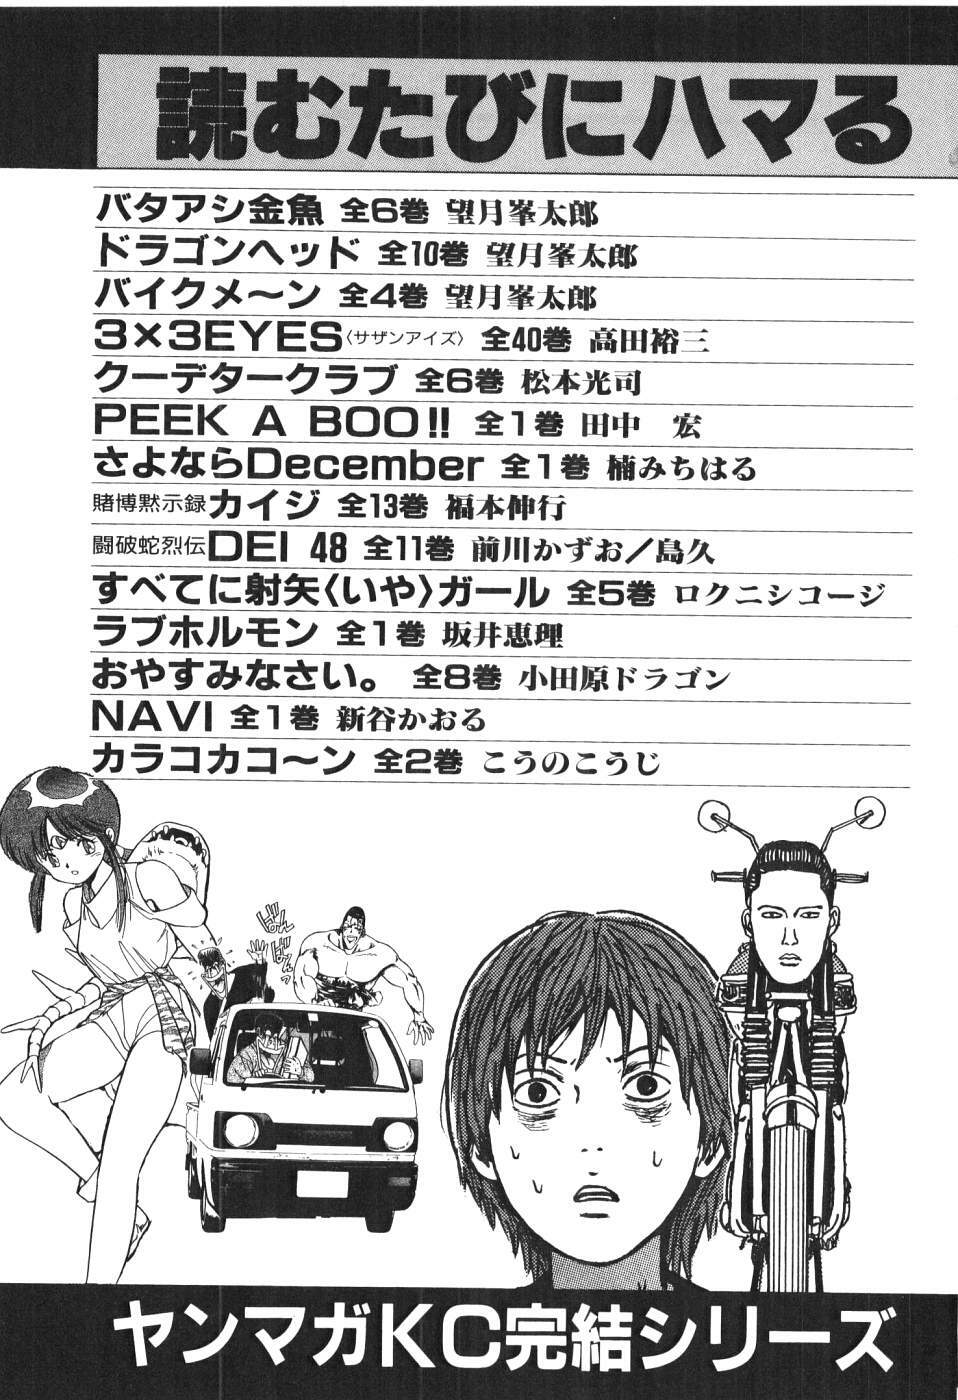 読むたびにハマる
バタアシ金魚 全6巻 望月峯太郎
ドラゴンヘッド 全10巻 望月峯太郎
バイクメ～ン 全4巻 望月峯太郎
3×3EYES〈サザンアイズ〉 全40巻 高田裕三
クーデタークラブ 全6巻 松本光司
PEEK A BOO!! 全1巻 田中 宏
さよならDecember 全1巻 楠みちはる
賭博黙示録カイジ 全13巻 福本伸行
闘破蛇烈伝DEI 48 全11巻 前川かずお／島久
すべてに射矢〈いや〉ガール 全5巻 ロクニシコージ
ラブホルモン 全1巻 坂井恵理
おやすみなさい。 全8巻 小田原ドラゴン
NAVI 全1巻 新谷かおる
カラコカコ～ン 全2巻 こうのこうじ
ばん
ばんっ
ヤンマガKC完結シリーズ